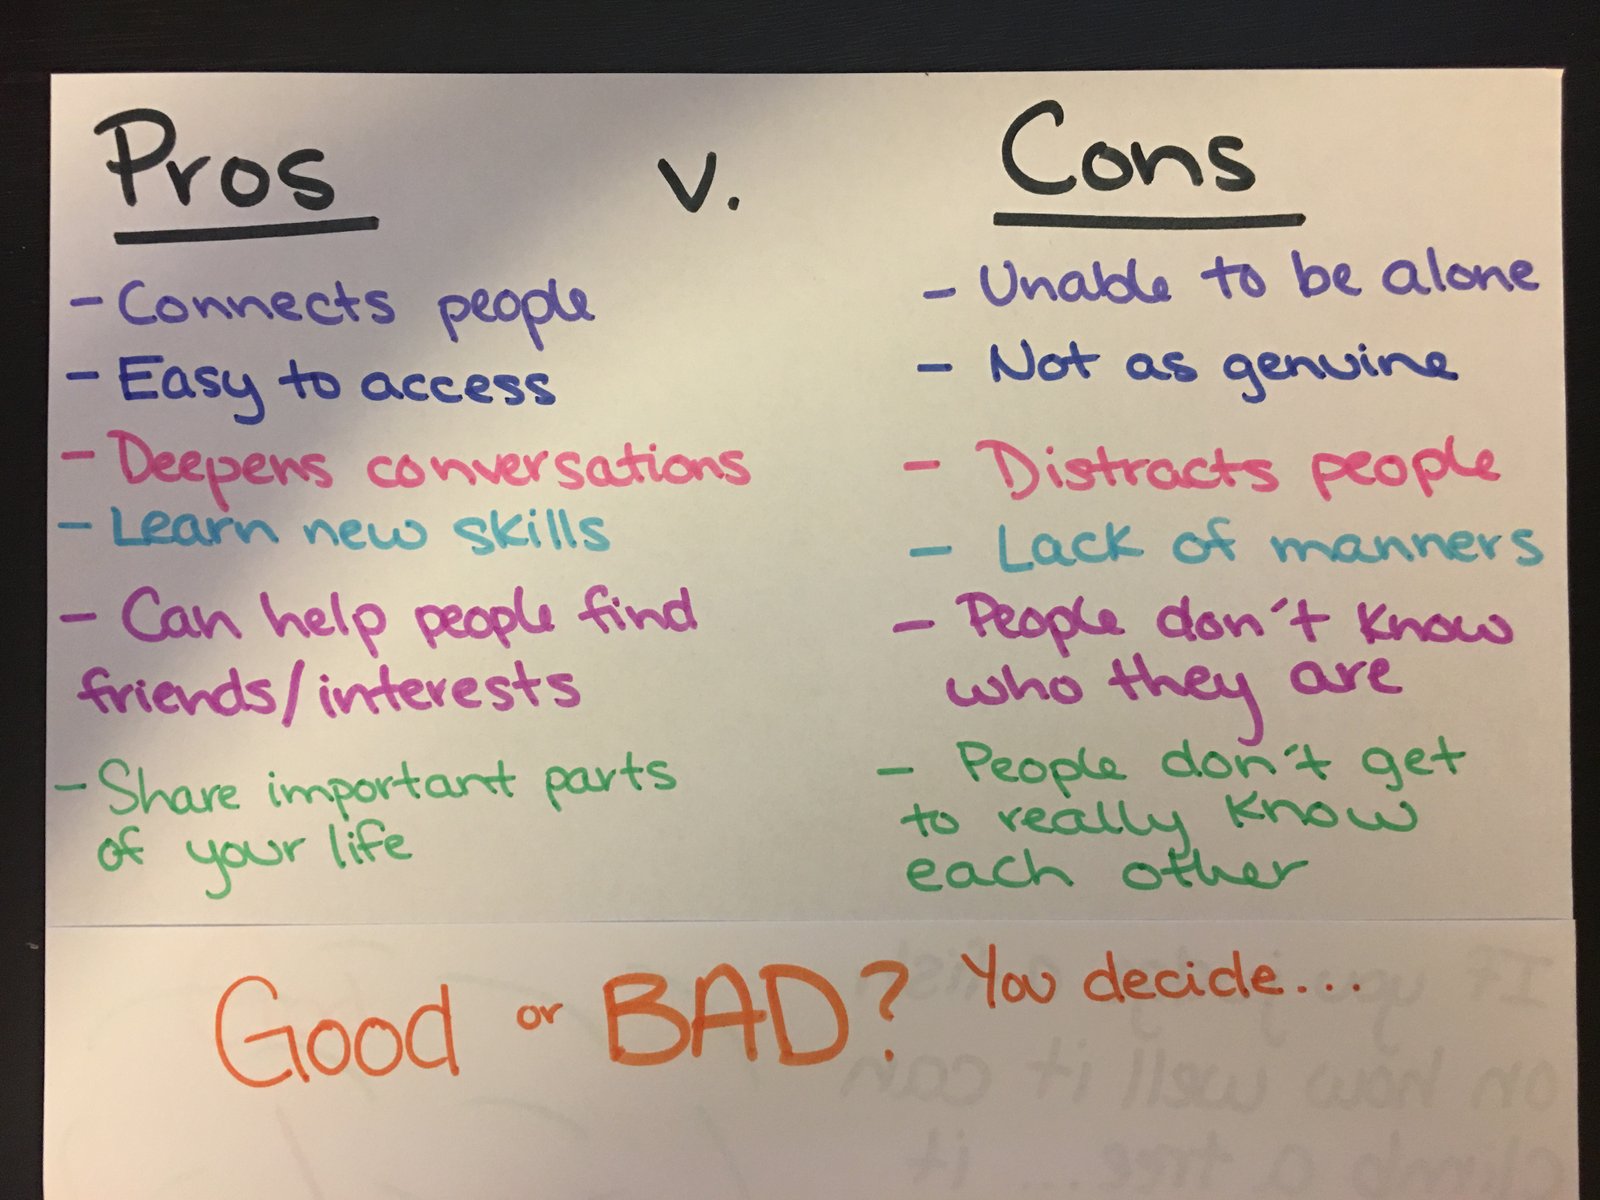 Pros v. Cons
- Connects people
- Easy to access
- Deepens conversations
- Learn new skills
- Can help people find
friends/interests
- Share important parts
of your life
- Unable to be alone
- Not as genuine
- Distracts people
- Lack of manners
- People don't know
who they are
- People don't get
to really know
each other
Good or BAD? You decide...
If you
on how well it can
climb a tree.... it